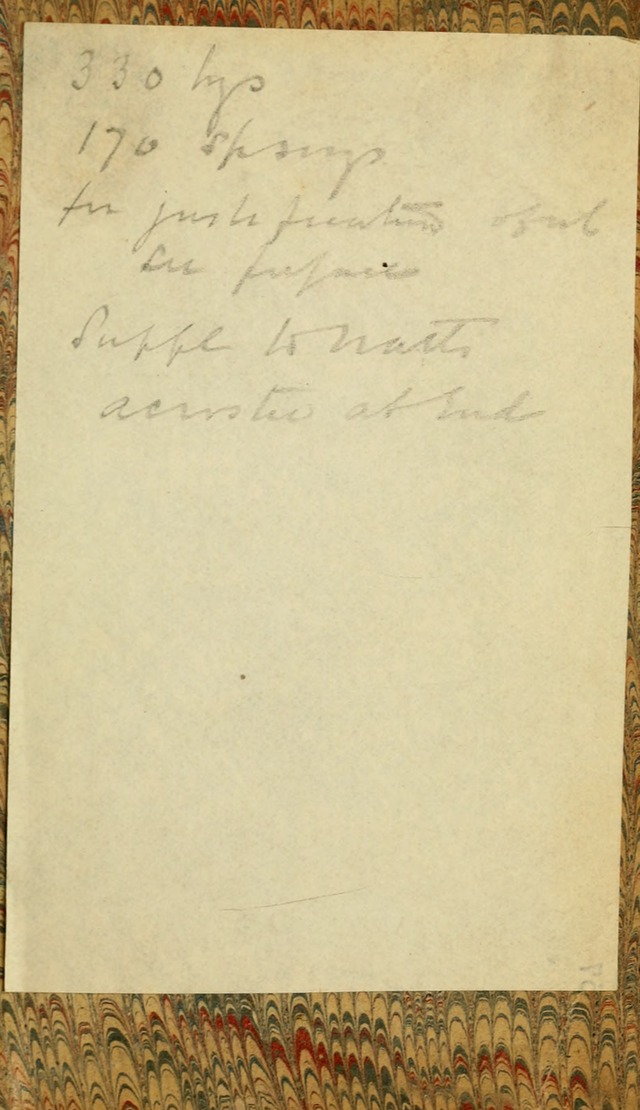 330 hys
170 sp songs
for justification of vol
See preface
Suppl to Watts
acrostic at End